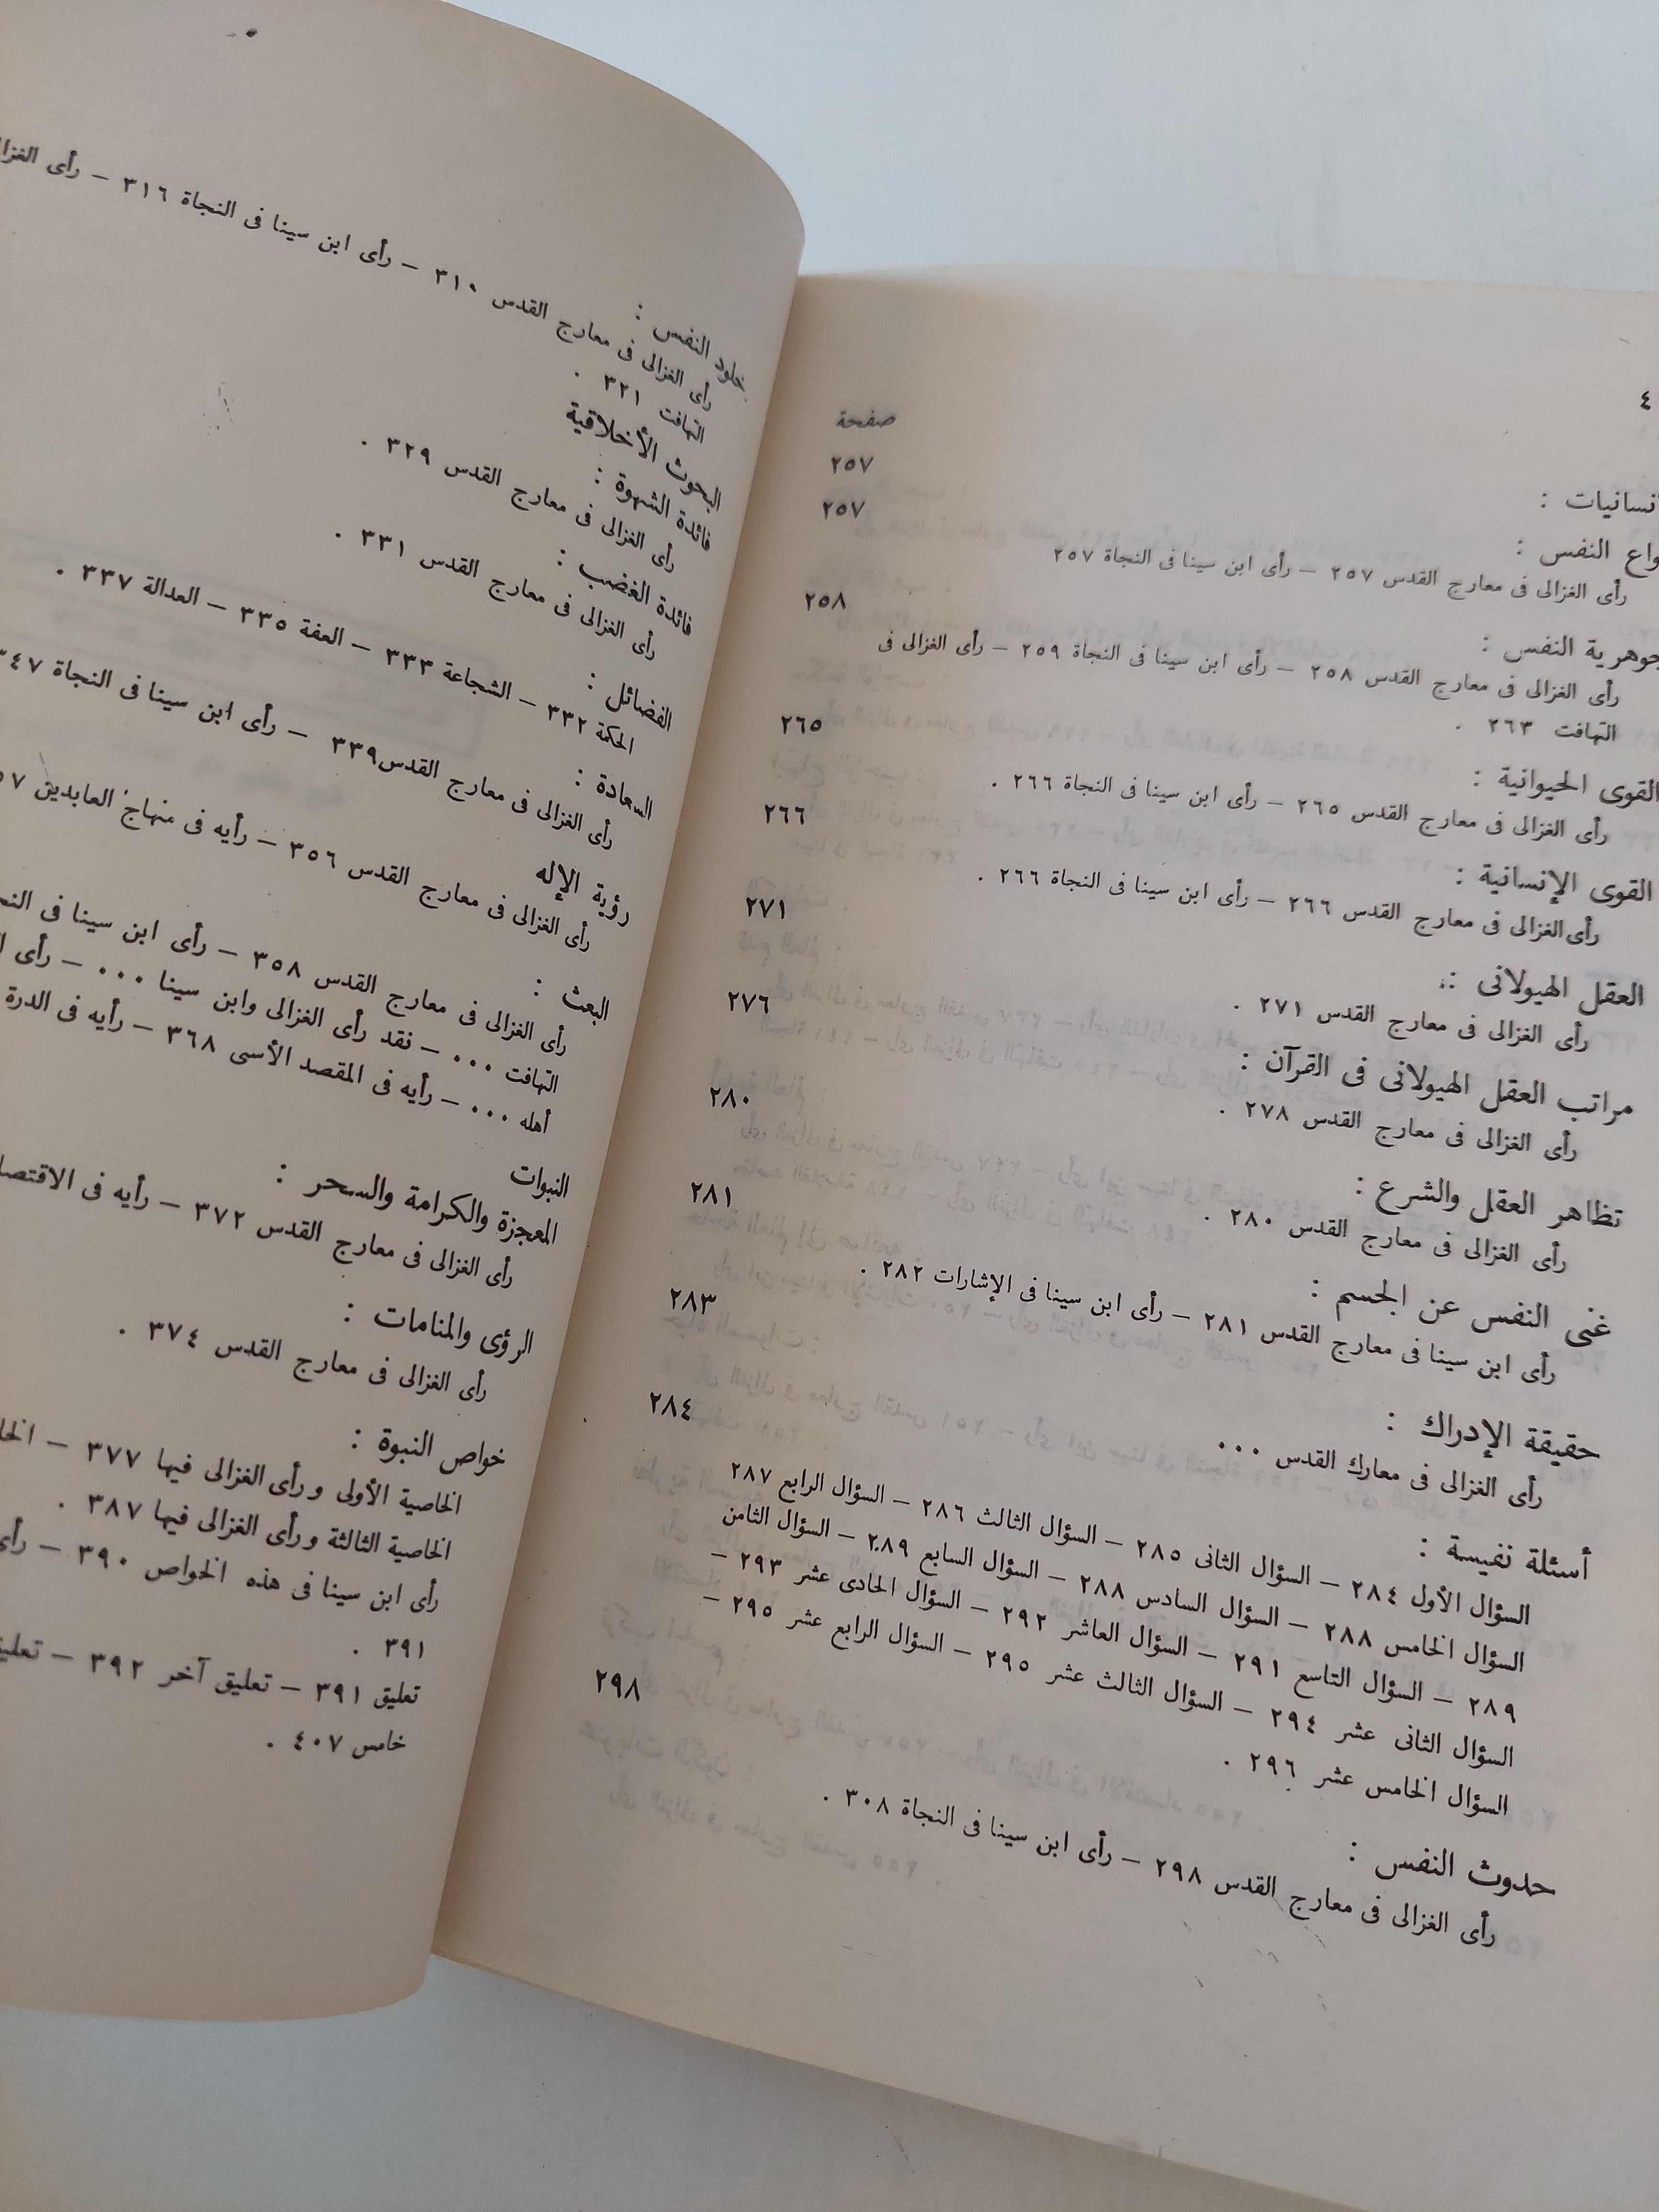 ٤
صفحة
نسانيات : ٢٥٧
واع النفس : ٢٥٧
رأى الغزالى فى معارج القدس ٢٥٧ — رأى ابن سينا فى النجاة ٢٥٧
جوهرية النفس : ٢٥٨
رأى الغزالى فى معارج القدس ٢٥٨ — رأى ابن سينا فى النجاة ٢٥٩ — رأى الغزالى فى
التهافت ٢٦٣ .
القوى الحيوانية : ٢٦٥
رأى الغزالى فى معارج القدس ٢٦٥ — رأى ابن سينا فى النجاة ٢٦٦ .
القوى الإنسانية : ٢٦٦
رأى الغزالى فى معارج القدس ٢٦٦ — رأى ابن سينا فى النجاة ٢٦٦ .
العقل الهيولانى : ٢٧١
رأى الغزالى فى معارج القدس ٢٧١ .
مراتب العقل الهيولانى فى القرآن : ٢٧٦
رأى الغزالى فى معارج القدس ٢٧٨ .
تظاهر العقل والشرع : ٢٨٠
رأى الغزالى فى معارج القدس ٢٨٠ .
غنى النفس عن الجسم : ٢٨١
رأى ابن سينا فى معارج القدس ٢٨١ — رأى ابن سينا فى الإشارات ٢٨٢ .
حقيقة الإدراك : ٢٨٣
رأى الغزالى فى معارك القدس ...
أسئلة نفيسة : ٢٨٤
السؤال الأول ٢٨٤ — السؤال الثانى ٢٨٥ — السؤال الثالث ٢٨٦ — السؤال الرابع ٢٨٧
السؤال الخامس ٢٨٨ — السؤال السادس ٢٨٨ — السؤال السابع ٢٨٩ — السؤال الثامن
٢٨٩ — السؤال التاسع ٢٩١ — السؤال العاشر ٢٩٢ — السؤال الحادى عشر ٢٩٣ —
السؤال الثانى عشر ٢٩٤ — السؤال الثالث عشر ٢٩٥ — السؤال الرابع عشر ٢٩٥ —
السؤال الخامس عشر ٢٩٦ .
حدوث النفس : ٢٩٨
رأى الغزالى فى معارج القدس ٢٩٨ — رأى ابن سينا فى النجاة ٣٠٨ .
خلود النفس :
رأى الغزالى فى معارج القدس ٣١٠ — رأى ابن سينا فى النجاة ٣١٦ — رأى الغزا
التهافت ٣٢١ .
البحوث الأخلاقية
فائدة الشهوة :
رأى الغزالى فى معارج القدس ٣٢٩ .
فائدة الغضب :
رأى الغزالى فى معارج القدس ٣٣١ .
الفضائل :
الحكمة ٣٣٢ — الشجاعة ٣٣٣ — العفة ٣٣٥ — العدالة ٣٣٧ .
السعادة :
رأى الغزالى فى معارج القدس ٣٣٩ — رأى ابن سينا فى النجاة ٣٤٧
رؤية الإله
رأى الغزالى فى معارج القدس ٣٥٦ — رأيه فى منهاج العابدين ٥٧
البعث :
رأى الغزالى فى معارج القدس ٣٥٨ — رأى ابن سينا فى النج
التهافت ... — نقد رأى الغزالى وابن سينا ... — رأى ا
أهله ... — رأيه فى المقصد الأسى ٣٦٨ — رأيه فى الدرة
النبوات
المعجزة والكرامة والسحر :
رأى الغزالى فى معارج القدس ٣٧٢ — رأيه فى الاقتصا
الرؤى والمنامات :
رأى الغزالى فى معارج القدس ٣٧٤ .
خواص النبوة :
الخاصية الأولى ورأى الغزالى فيها ٣٧٧ — الخا
الخاصية الثالثة ورأى الغزالى فيها ٣٨٧ .
رأى ابن سينا فى هذه الخواص ٣٩٠ — رأى
٣٩١ .
تعليق ٣٩١ — تعليق آخر ٣٩٢ — تعليق
خامس ٤٠٧ .